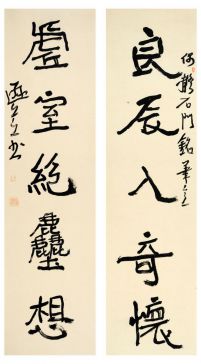 石門銘筆意
良辰入奇懷
虛室絕塵想